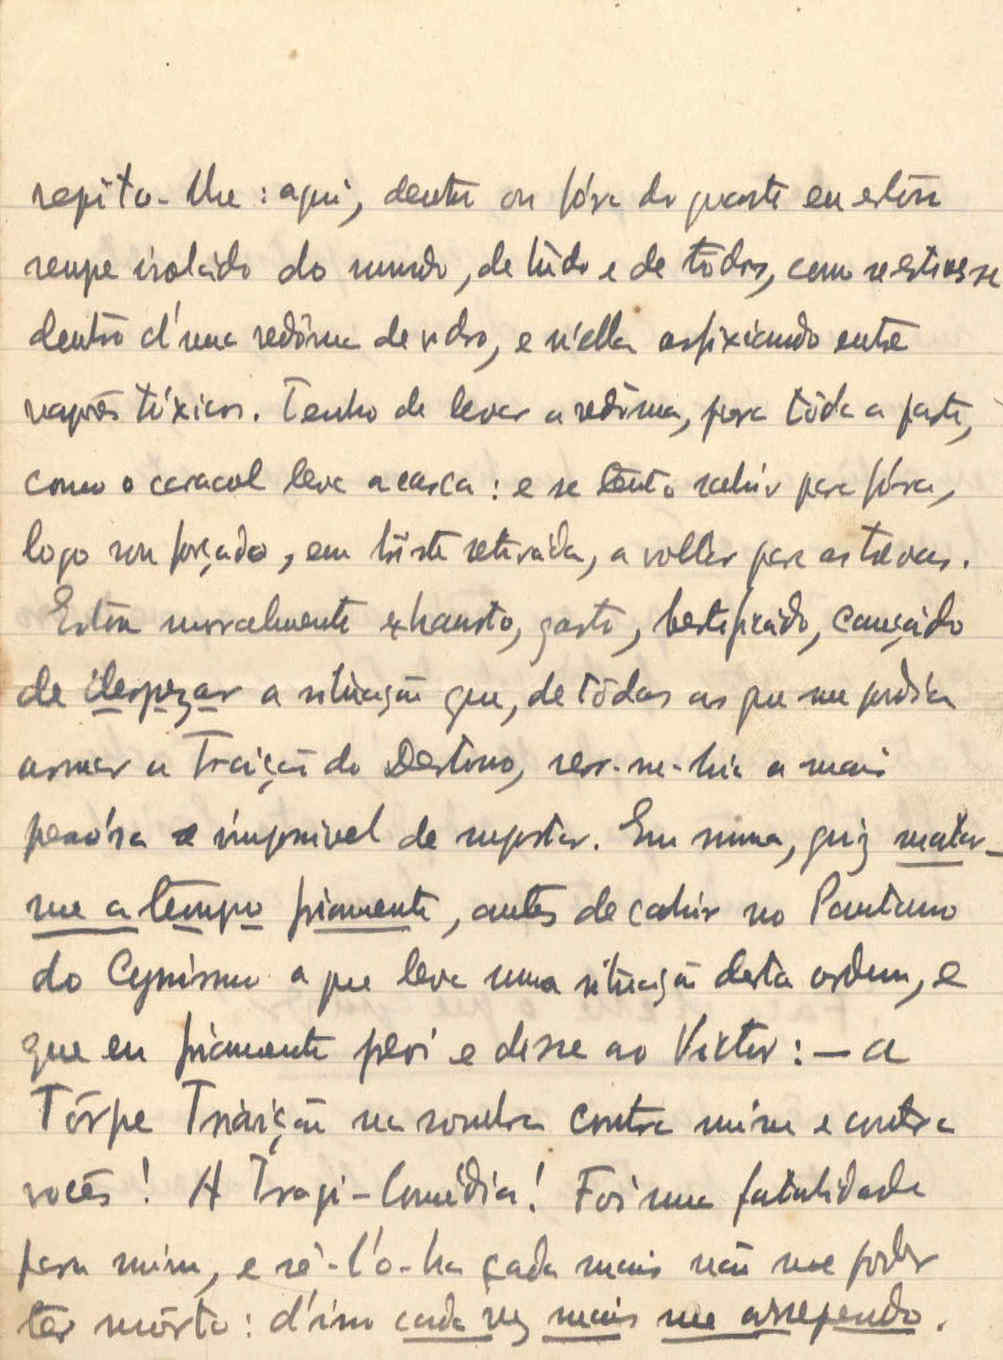 repito-lhe : aqui, dentro ou fóra do quarto eu estou
sempe isoládo do mundo, de túdo e de tôdos, como se estivesse
dentro d'uma redôma de vidro, e n'ella asfixiando entre
vapôres tóxicos. Tenho de levar a redôma, para tôda a parte,
como o caracol leva a casca : e se tento sahir para fóra,
logo sou forçado, em triste retirada, a voltar para as trévas.
Estou moralmente exhausto, gasto, bestificádo, cançádo
de despezar a situação que, de tôdas as que me podia
armar a Traição do Destino, ser-me-hia a mais
penósa e impossivel de suportar. Em suma, quiz matar-
me a tempo friamente, antes de cahir no Pantano
do Cynismo a que leva uma situação desta ordem, e
que eu friamente previ e disse ao Victor : — a
Tôrpe Traição na sombra contra mim e contra
vocês ! A Tragi-Comédia ! Foi uma fatalidade
para mim, e sê-l'o-ha cada mais não me poder
ter môrto : d'isso cada vez mais me arrependo.